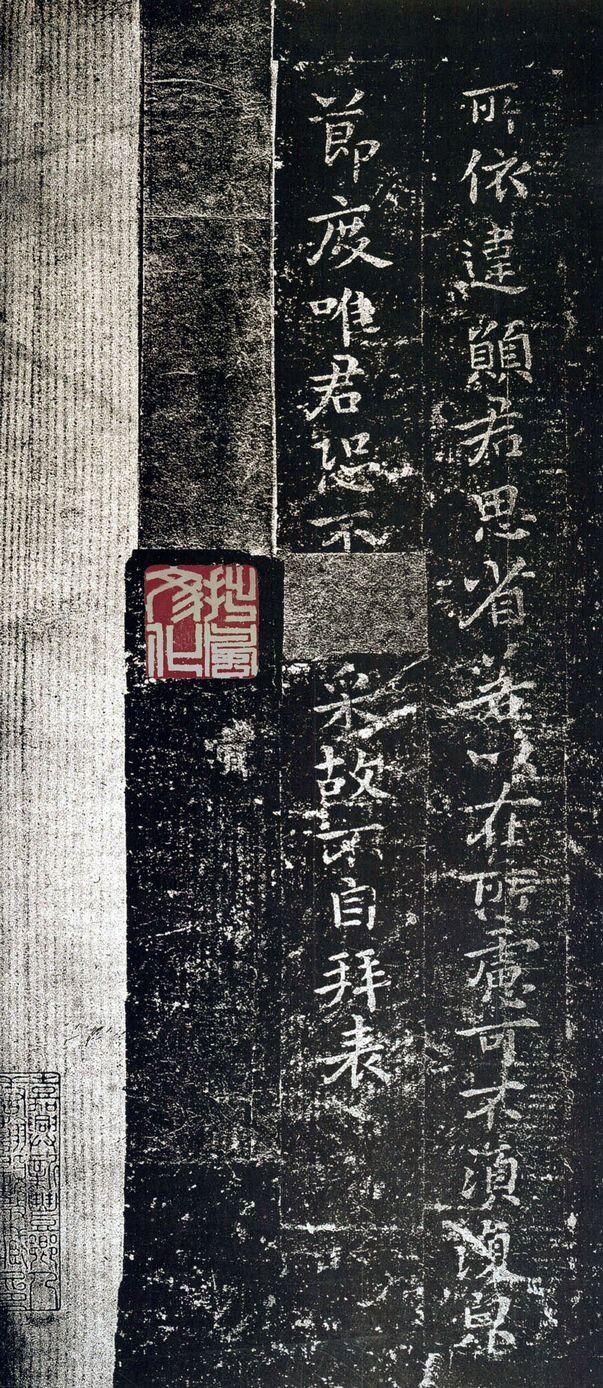 所依違願君思省若以在所慮可不須復
節度唯君恐不
采故不自拜表
拙風文化